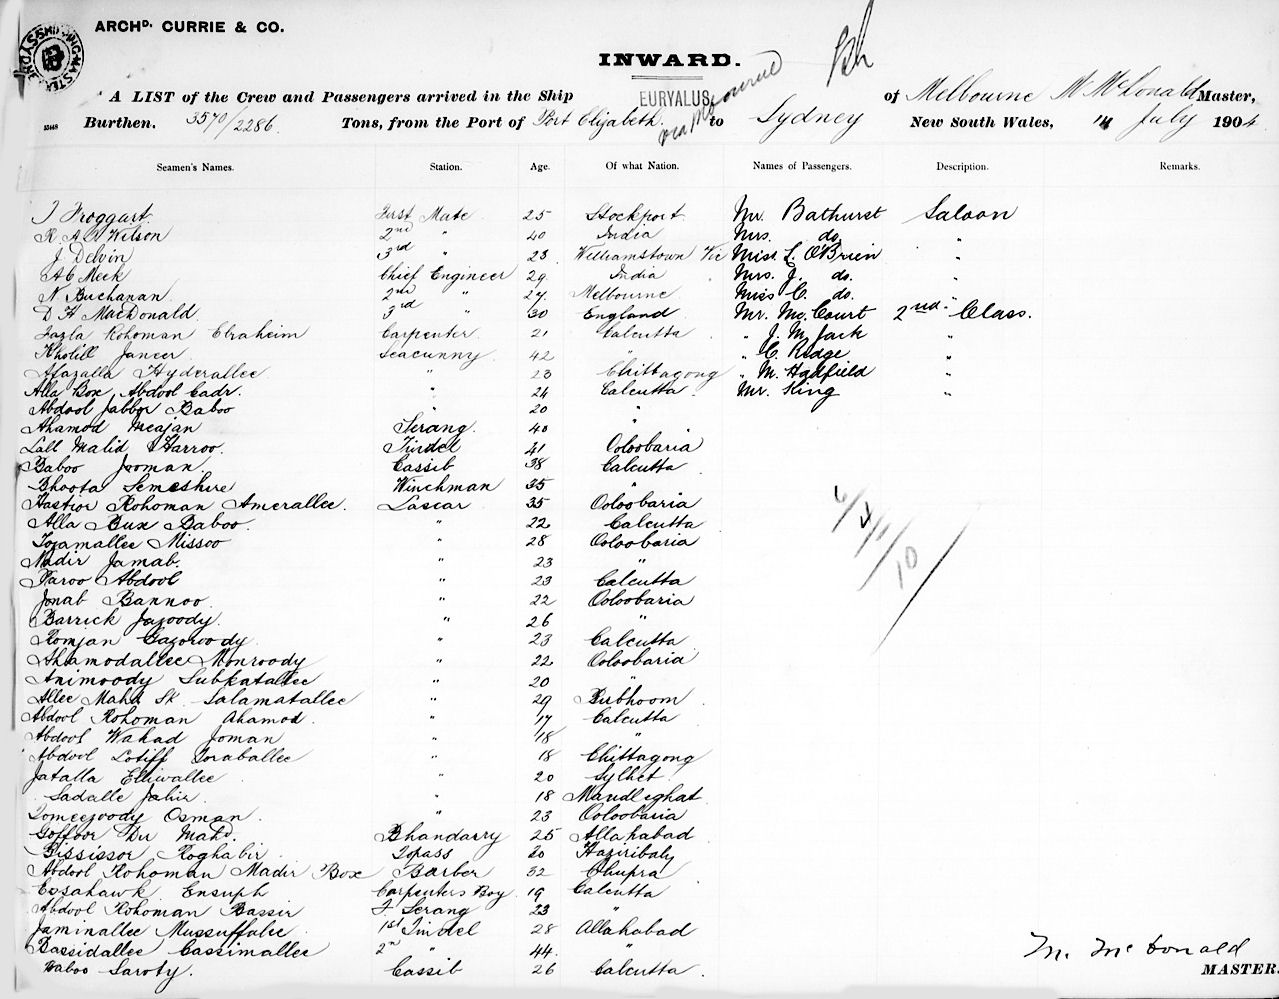 ARCHD. CURRIE & CO.
INWARD.
A LIST of the Crew and Passengers arrived in the Ship EURYALUS of Melbourne M McDonald Master,
via Melbourne
Burthen. 3570/2286 Tons, from the Port of Port Elizabeth to Sydney New South Wales, July 1904
Seamen's Names. Station. Age. Of what Nation. Names of Passengers. Description. Remarks.
J Froggart First Mate 25 Stockport Mr. Bathurst Saloon
R A B Wilson 2nd " 40 India Mrs. do. "
J Delvin 3rd " 23 Williamstown Vic Miss L. O'Brien "
A C Meek Chief Engineer 29 India Mrs. J. do. "
N Buchanan 2nd " 27 Melbourne Miss C. do. "
D H MacDonald 3rd " 30 England Mr. Mc Court 2nd Class.
Fazla Rohoman Ebraheim Carpenter 21 Calcutta " J. M. Jack "
Kholill Janeer Seacunny 42 " " C. Ridge "
Afazalla Hyderallee " 23 Chittagong " M. Hadfield "
Alla Box Abdool Cadr. " 24 Calcutta Mr. King "
Abdool Jabbor Baboo " 20 "
Ahamod Meajan Serang 40 "
Lall Malid Harroo Tindel 41 Ooloobaria
Baboo Jooman Cassib 38 Calcutta
Bhoota Semeshire Winchman 35 "
Hastior Rohoman Amerallee. Lascar 35 Ooloobaria
Alla Bux Baboo " 22 Calcutta
Tozamallee Missoo " 28 Ooloobaria
Nadir Jamab " 23 "
Naroo Abdool " 23 Calcutta
Jonab Bannoo " 22 Ooloobaria
Barrick Jazoody " 26 "
Romjan Gazoroody " 23 Calcutta
Ahamodallee Monroody " 22 Ooloobaria
Animoody Subkatallee " 20 "
Allee Mahd Sk Salamatallee " 29 Birbhoom
Abdool Rohoman Ahamod. " 17 Calcutta
Abdool Wahad Joman " 18 "
Abdool Lotiff Toraballee " 18 Chittagong
Jatalla Elliwallee " 20 Sylhet
Sadalle Jahir " 18 Maudleghat
Tomeezoody Osman " 23 Ooloobaria
Goffoor Du Mahd. Bhandarry 25 Allahabad
Bississor Roghabir Topass 20 Haziribaly
Abdool Rohoman Madir Box Barber 32 Chupra
Eosahawk Ensuph Carpenters Boy 19 Calcutta
Abdool Rohoman Bassir F. Serang 23 "
Jaminallee Mussuffalie 1st Tindel 28 Allahabad
Bassidallee Cassimallee 2nd " 44 "
Baboo Saroty. Cassib 26 Calcutta
10
M. McDonald
MASTER.